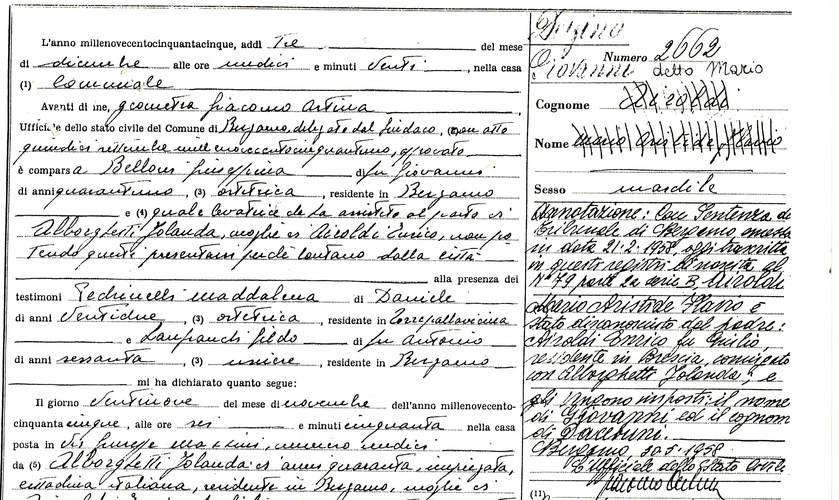 L'anno millenovecentocinquantacinque, addì Tre del mese
di dicembre alle ore undici e minuti venti, nella casa
(1) Comunale
Avanti di me, geometra Giacomo Artina
Ufficiale dello stato civile del Comune di Bergamo, delegato dal Sindaco, con atto
quindici settembre millenovecentocinquantuno, approvato
è comparsa Belloni Giuseppina di fu Giovanni
di anni quarantuno, (3) ostetrica, residente in Bergamo
e (4) quale levatrice che ha assistito al parto di
Alborghetti Jolanda, moglie di Airoldi Enrico, non po
tendo questi presentarsi perché lontano dalla città
alla presenza dei
testimoni Pedrinelli Maddalena di Daniele
di anni ventidue, (3) ostetrica, residente in Torrepallavicina
e Lanfranchi Gildo di fu Antonio
di anni sessanta, (3) usciere, residente in Bergamo
mi ha dichiarato quanto segue:
Il giorno ventinove del mese di novembre dell'anno millenovecento-
cinquantacinque, alle ore sei e minuti cinquanta nella casa
posta in Via Giuseppe Mazzini, numero undici
da (5) Alborghetti Jolanda di anni quaranta, impiegata,
cittadina italiana, residente in Bergamo, moglie di
Giovanni detto Mario
Numero 2662
Cognome
Nome
Sesso maschile
Annotazione: Con Sentenza del
Tribunale di Bergamo emessa
in data 21-2-1958, oggi trascritta
in questi registri di nascita al
N° 79 parte 2a serie B, Airoldi
Mario Aristide Flavio è
stato disconosciuto dal padre:
Airoldi Enrico fu Giulio,
residente in Brescia, coniugato
con Alborghetti Jolanda; e
gli vengono imposti: il nome
di Giovanni ed il cognome
di
Bergamo, 30-5-1958
L'Ufficiale dello Stato Civile
(11)